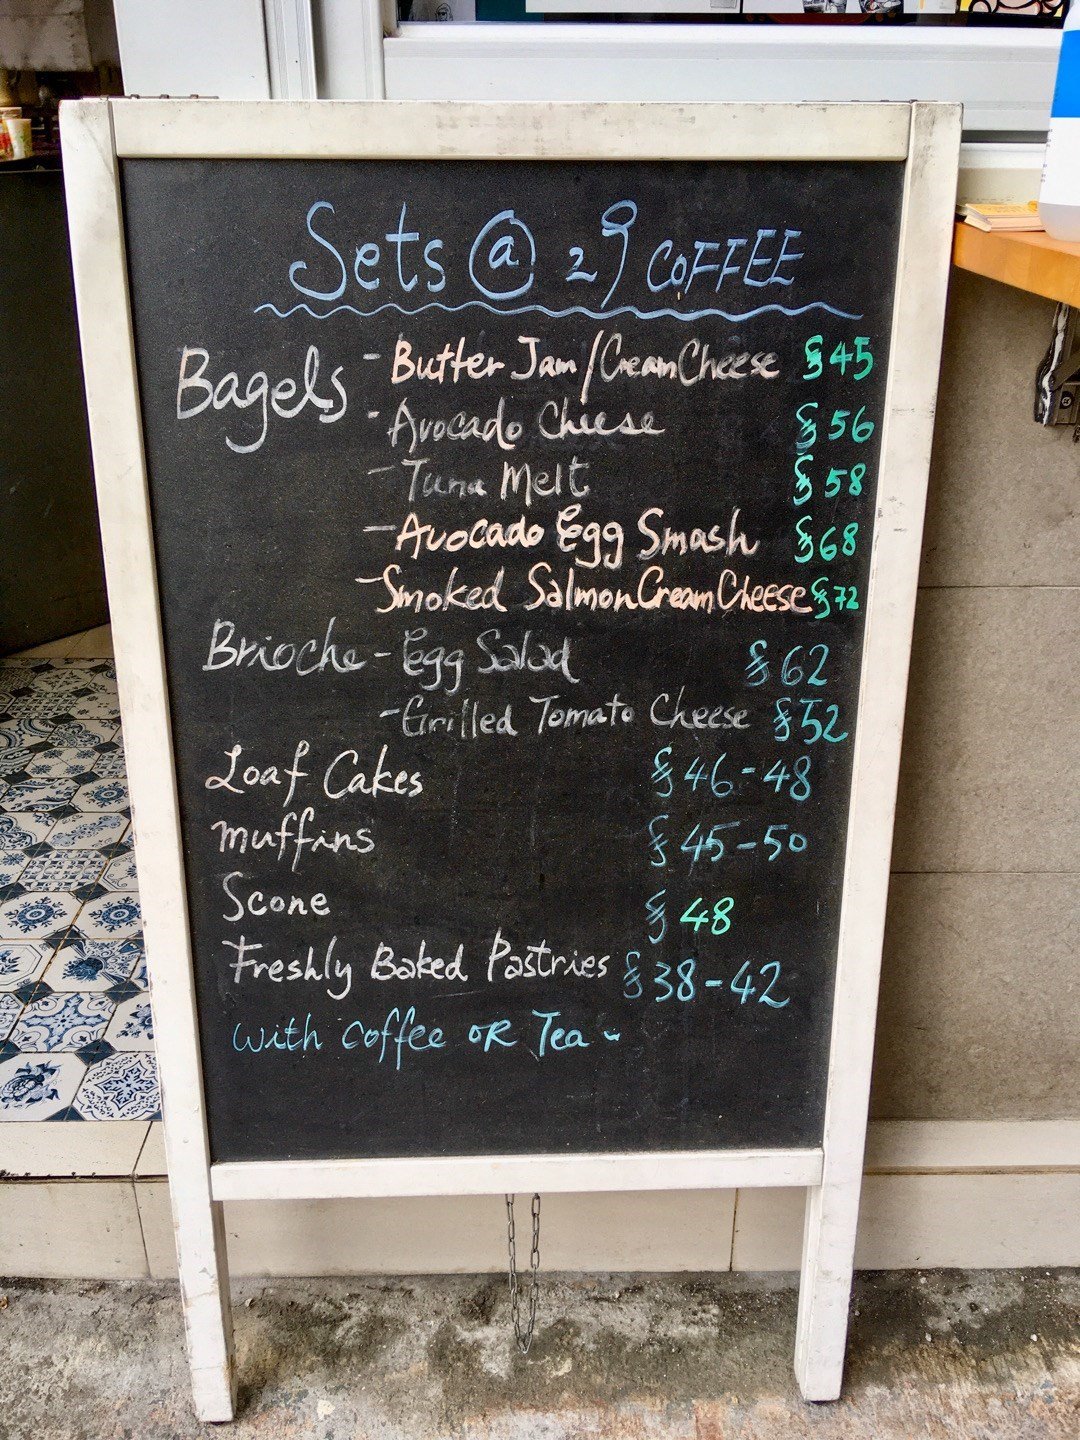 Sets @ 29 COFFEE
Bagels - Butter Jam / Cream Cheese $45
- Avocado Cheese $56
- Tuna Melt $58
- Avocado Egg Smash $68
- Smoked Salmon Cream Cheese $72
Brioche - Egg Salad $62
- Grilled Tomato Cheese $52
Loaf Cakes $46-48
Muffins $45-50
Scone $48
Freshly Baked Pastries $38-42
with coffee OR Tea ~